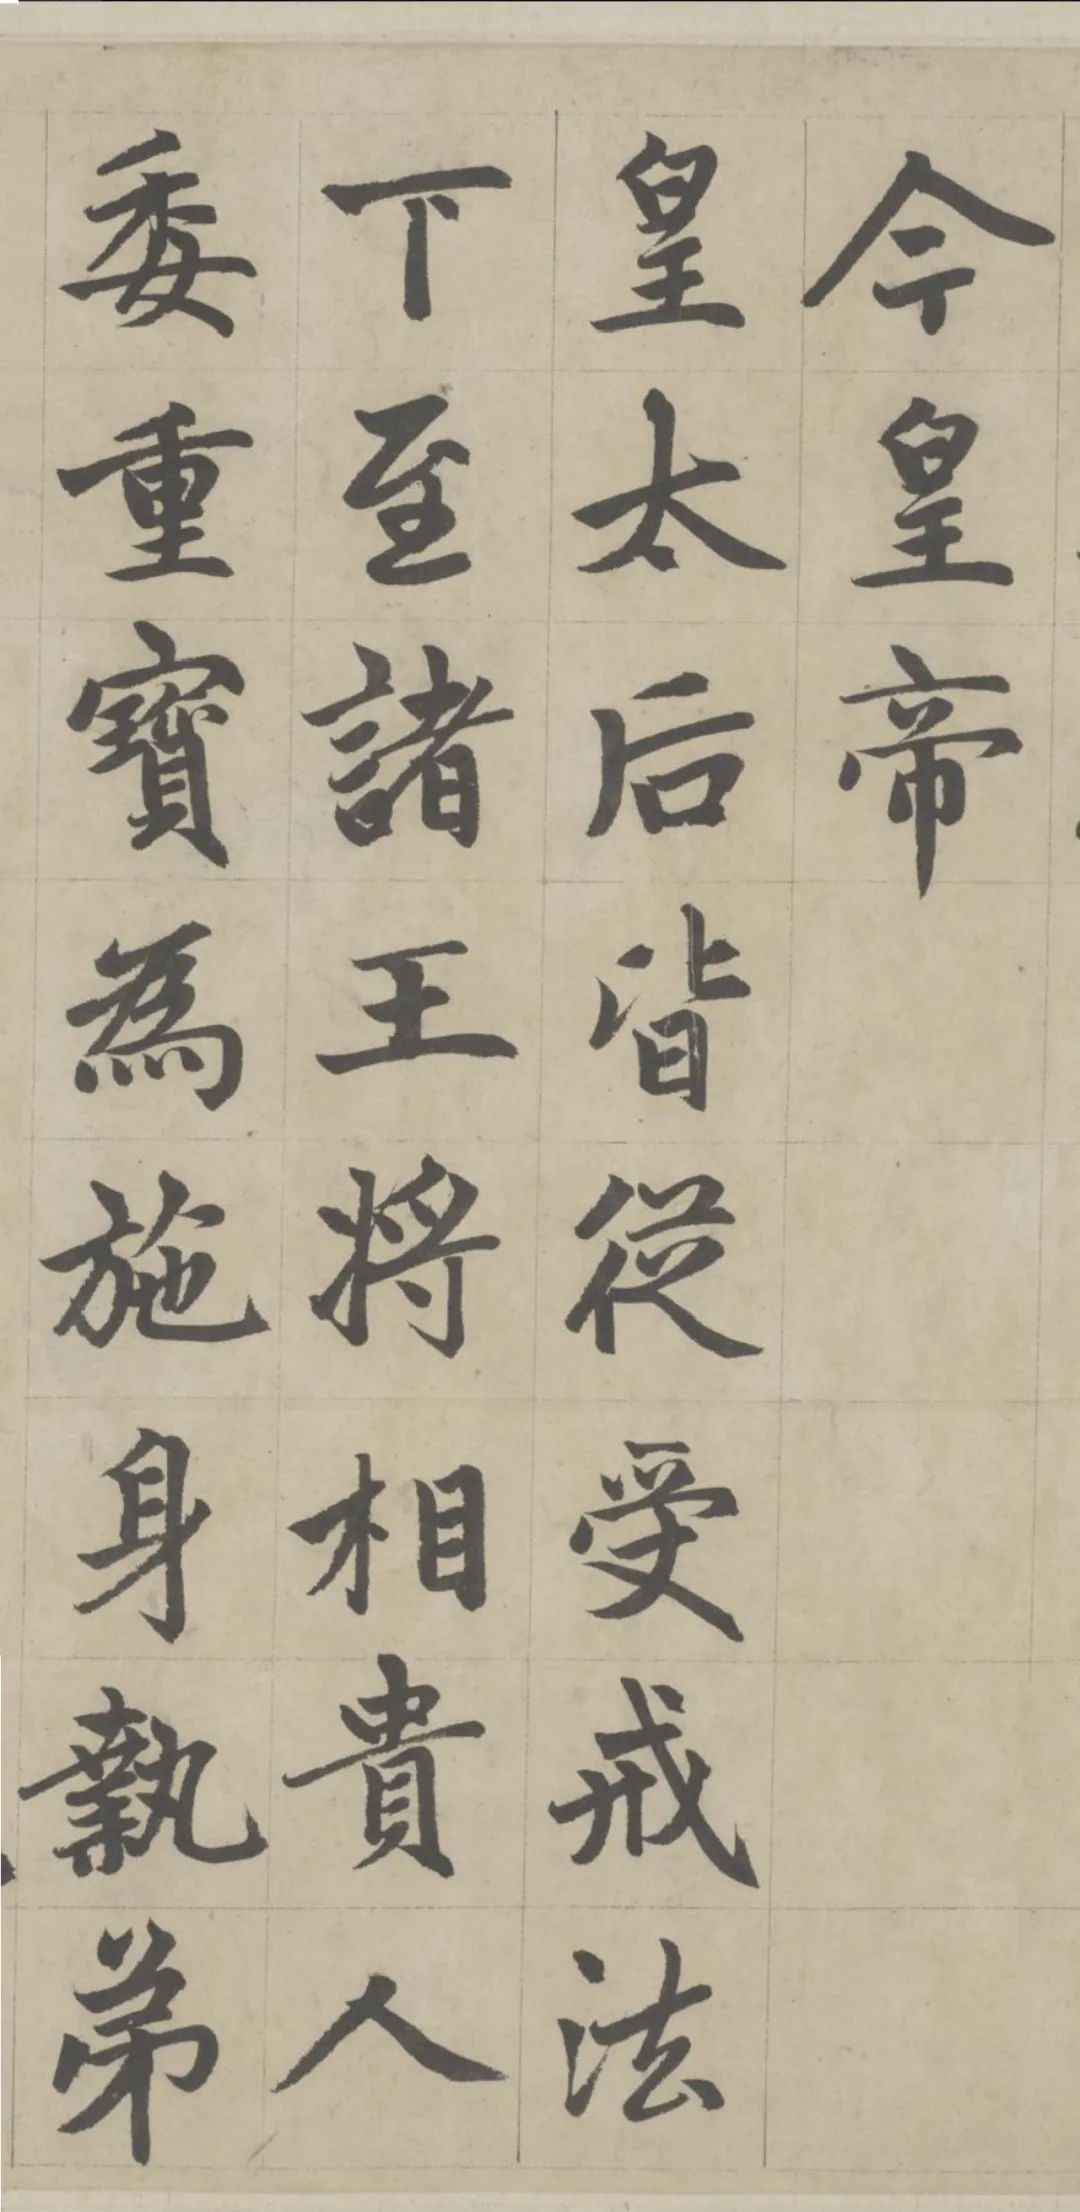 今皇帝
皇太后皆從受戒法
下至諸王將相貴人
委重寶為施身執弟